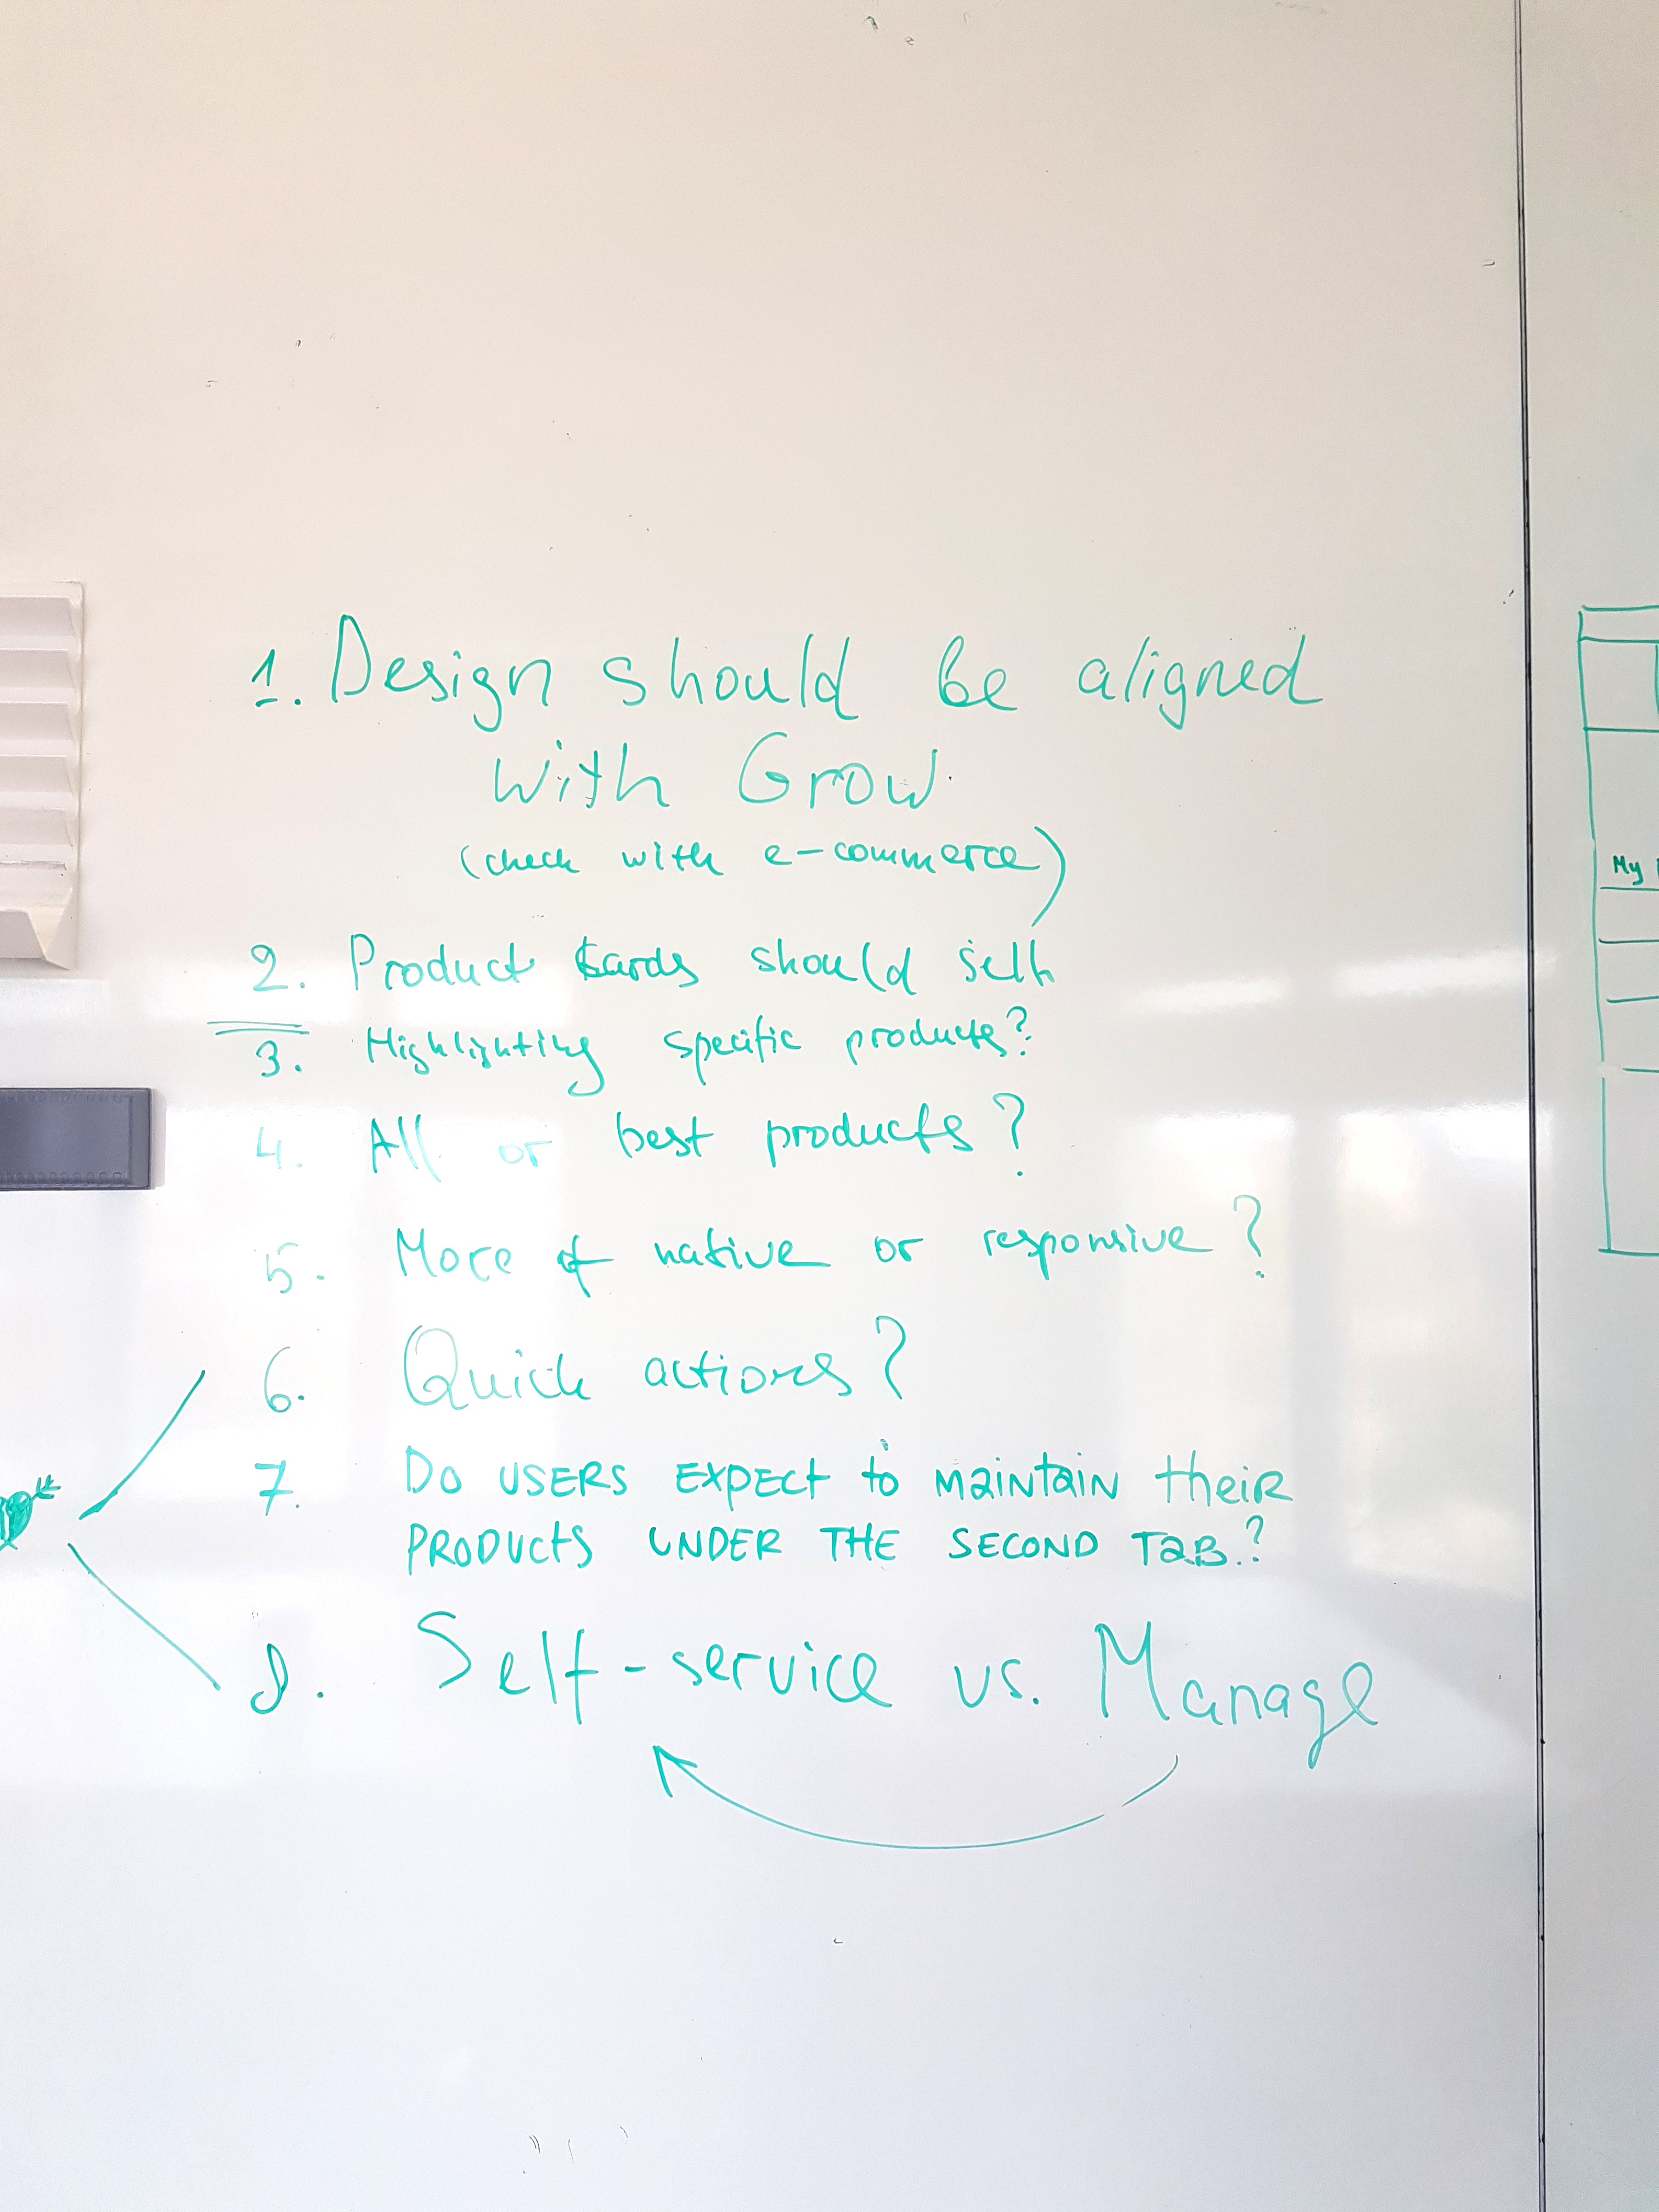 1. Design should be aligned
with Grow
(check with e-commerce)
2. Product cards should sell
3. Highlighting specific products?
4. All or best products?
5. More of native or responsive?
6. Quick actions?
7. Do USERS EXPECT to MaiNtaiN theiR
PRODUCtS UNDER THE SECOND TaB.?
8. Self-service vs. Manage
My